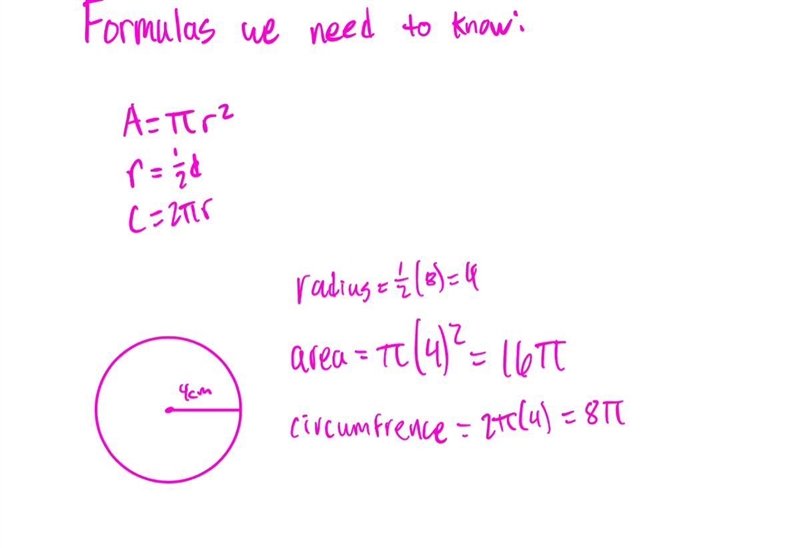 Formulas we need to know:
A=πr²
r=½d
C=2πr
radius=½(8)=4
area=π(4)²=16π
4cm
circumfrence=2π(4)=8π